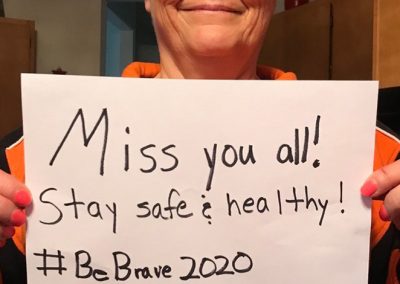 Miss you all!
Stay safe & healthy!
#BeBrave 2020